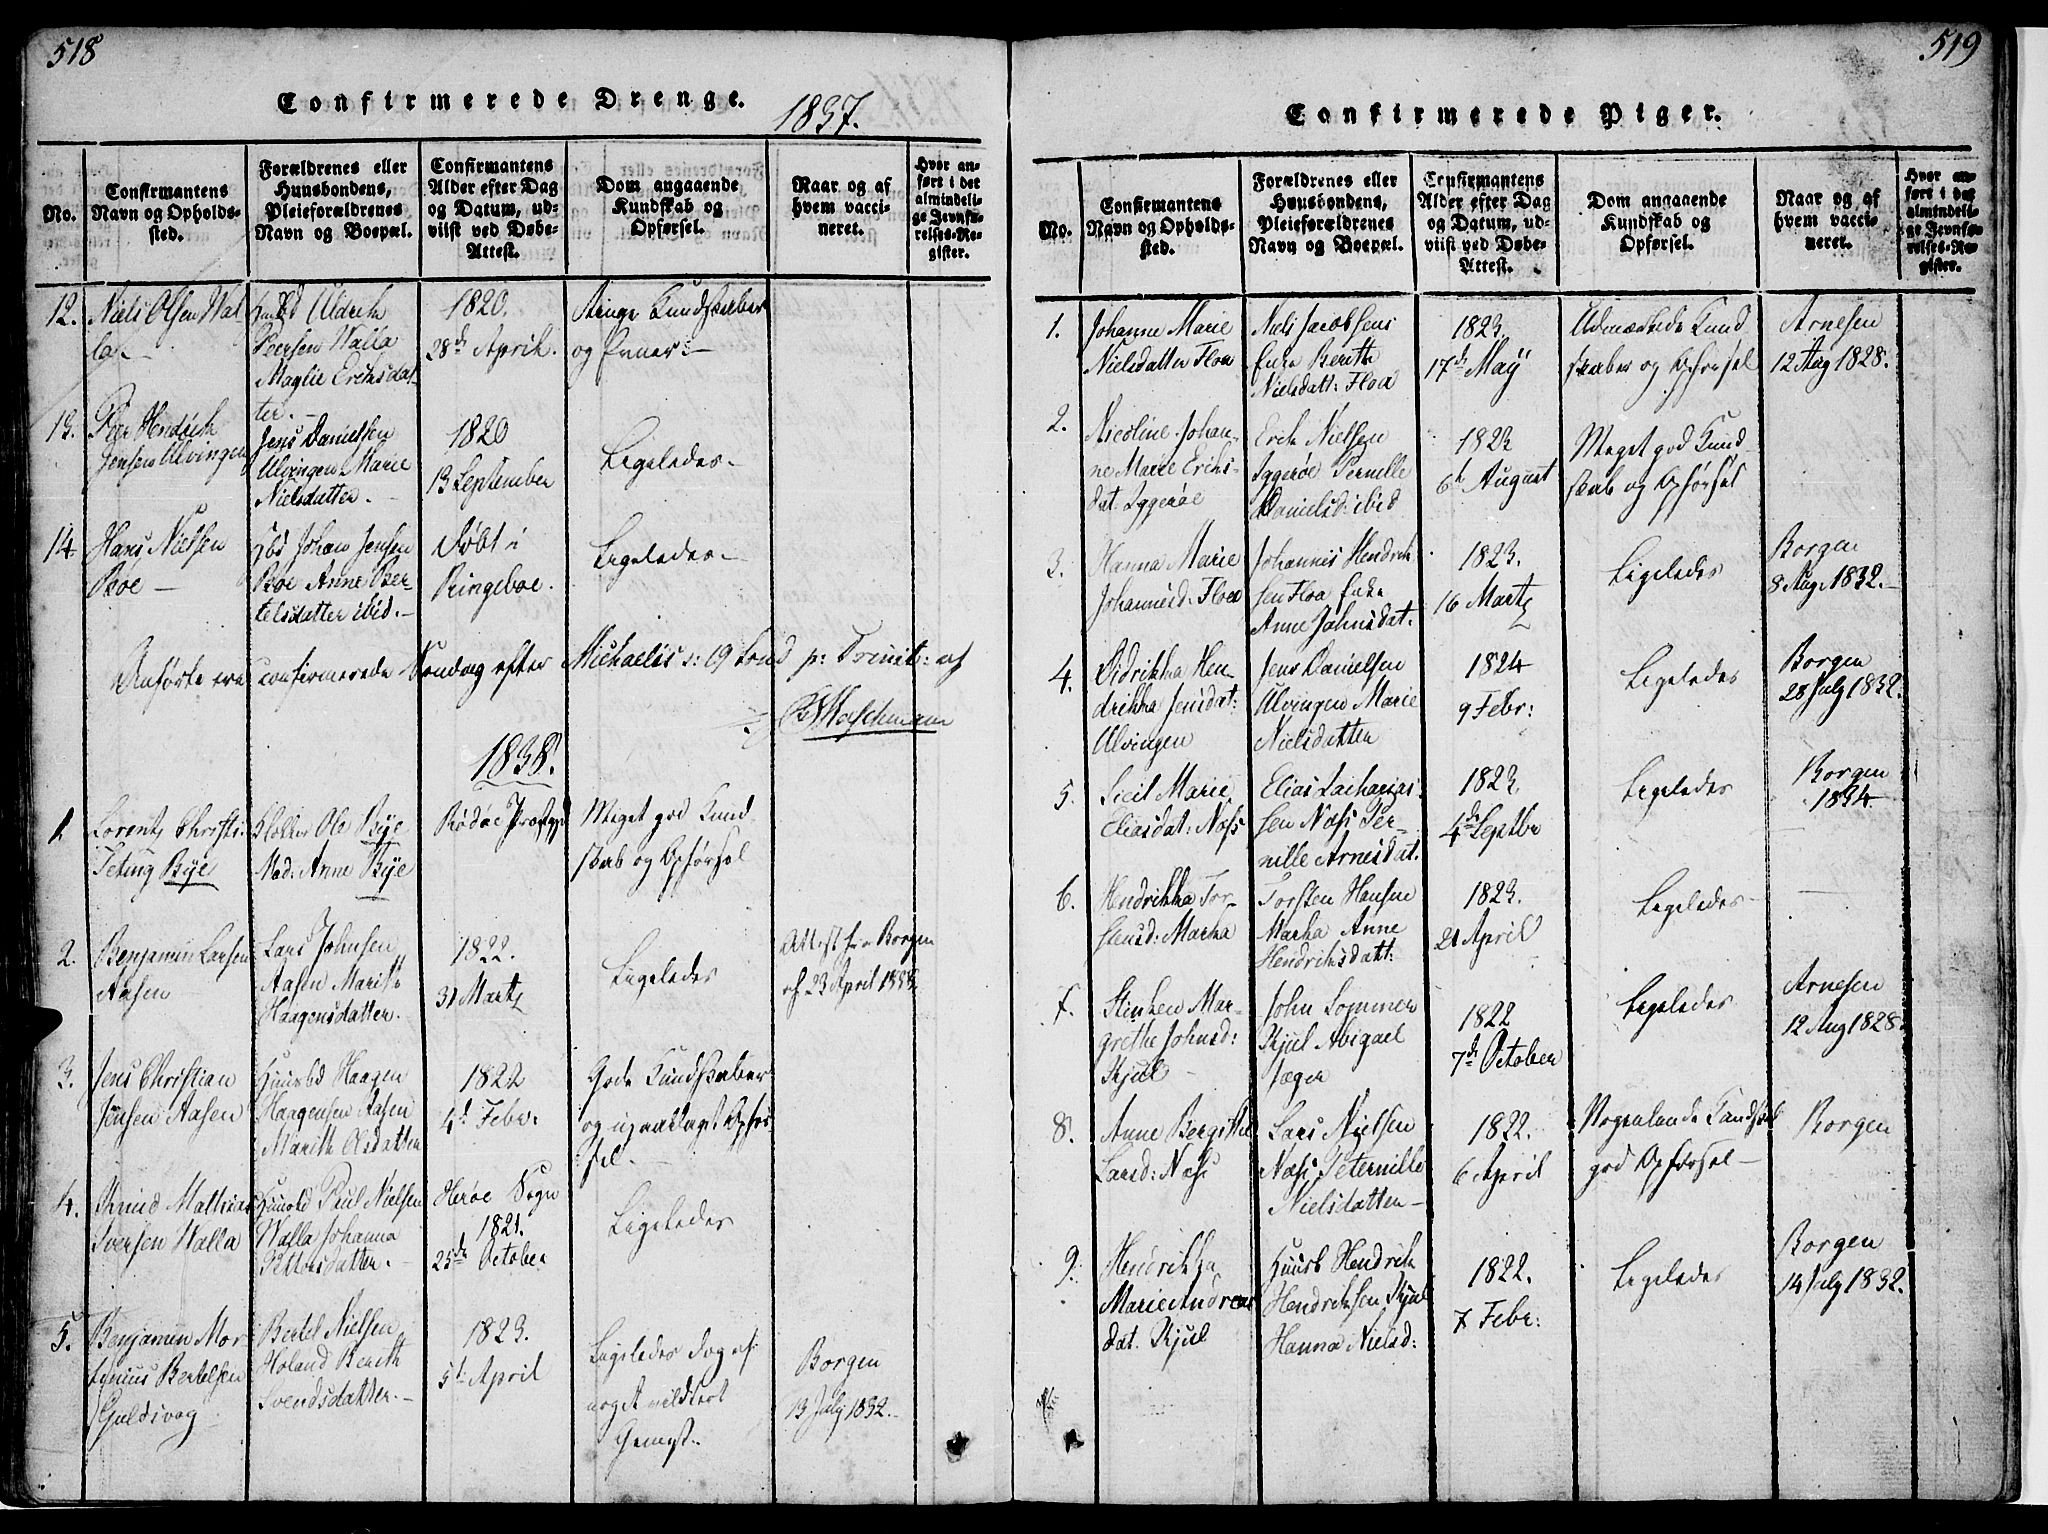 518
Confirmerede Drenge.
1837.
No.
Confirmantens
Navn og Opholds-
sted.
Forældrenes eller
Huusbondens,
Pleieforældrenes
Navn og Boepæl.
Confirmantens
Alder efter Dag
og Datum, ud-
viist ved Døbe-
Attest.
Dom angaaende
Kundskab og
Opførsel.
Naar og af
hvem vacci-
neret.
Hvor an-
ført i det
almindeli-
ge Jevnfø-
relses-Re-
gister.
12.
Niels Olsen Wal
la
Uldrik
Peersen Walla
Magli Eriksdat-
ter.
1820.
28de April.
Ringe Kundskaber
og Evner
13.
Peer Hendrik
Jensen Ulvingen
Jens Danielsen
Ulvingen Marie
Nielsdatter.
1820
13 September
Ligeledes
14
Hans Nielsen
Bøe
Johan Jensen
Bøe Anne Ber-
telsdatter ibid.
Døbt i
Ringeboe.
Ligeledes
Anførte ere confirmerede Søndag efter Michaelis : 19 Sønd p: Trinit: af
Maschmann
1838.
1.
Lorentz Christi
Teting Bÿe
Klokker Ole Bÿe
Mad: Anne Bÿe
Rødøe Præstegj
Meget god Kund
skab og Opførsel
2.
Benjamin Larsen
Aasen
Lars Johnsen
Aasen Marith
Haagensdatter.
1822.
31 Martz
Ligeledes
Attest fra Borgen
af 23 April 1838
3.
Jens Christian
Jensen Aasen
Huusbd Haagen
Haagensen Aasen
Marith Olsdatter
1822
4d Febr.
Gode Kundskaber
og upaaklaget Opfør
sel.
4.
Knud Mathias
Iversen Walla
Huusbd Paul Nielsen
Walla Johanna
Pettersdatter.
Herøe Sogn
1821.
25de October
Ligeledes
5.
Benjamin Mor
tinius Bertelsen
Guldsvog
Bertel Nielsen
Holand Berith
Svendsdatter.
1823.
5t April
Ligeledes dog af
noget
Gemyt.
Borgen
13 July 1832.
519
Confirmerede Piger.
No.
Confirmantens
Navn og Opholds-
sted.
Forældrenes eller
Huusbondens,
Pleieforældrenes
Navn og Boepæl.
Confirmantens
Alder efter Dag
og Datum, ud-
viist ved Døbe-
Attest.
Dom angaaende
Kundskab og
Opførsel.
Naar og af
hvem vacci-
neret.
Hvor an-
ført i det
almindeli-
ge Jevnfø-
relses-Re-
gister.
1.
Johanne Marie
Nielsdatter Floa
Niels Jacobsens
Enke Berith
Nielsdatt: Floa
1823.
17de Maÿ
Udmærkede Kund
skaber og Opførsel
Arnesen
12 Aug 1828.
2.
Nicoline Johan-
ne Marie Eriks-
dat. Iggerøe
Erik Nielsen
Iggerøe Pernille
Danielsd: ibid
1823
6t August
Meget god Kund-
skab og Opførsel
3.
Hanna Marie
Johannesd: Floa
Johannis Hendrik
sen Floa Enke
Anne Johnsdat.
1823.
16 Martz
Ligeledes
Borgen
8 Aug. 1832.
4.
Didrikka Hen-
drikka Jensdat:
Ulvingen
Jens Danielsen
Ulvingen Marie
Nielsdatter
1824
9 Febr:
Ligeledes
Borgen
28 July 1832.
5.
Sicil Marie
Eliasdat: Næss
Elias Zacharias-
sen Næss Per-
nille Arnesdat.
1823.
4de Septbr
Ligeledes
Borgen
1834
6.
Hendrikka Tor-
stensd: Marka
Torsten Hansen
Marka Anne
Hendriksdatt:
1823.
21 April
Ligeledes
7.
Stinken Mar-
grethe Johnsd:
Kjul
John Sommer
Kjul Abigael
Jæger
1822
7de October
Ligeledes
Arnesen
12 Aug 1828
8.
Anne Bergithe
Larsd: Næss
Lars Nielsen
Næss Peternille
Nielsdatter
1822.
6 April
Nogenlunde Kundskab
god Opførsel
Borgen
9.
Hendrikka
Marie Andreas
dat. Kjul
Huusb Hendrik
Hendriksen Kjul
Hanna Nielsd:
1822.
7 Febr:
Ligeledes
Borgen
14 July 1832.